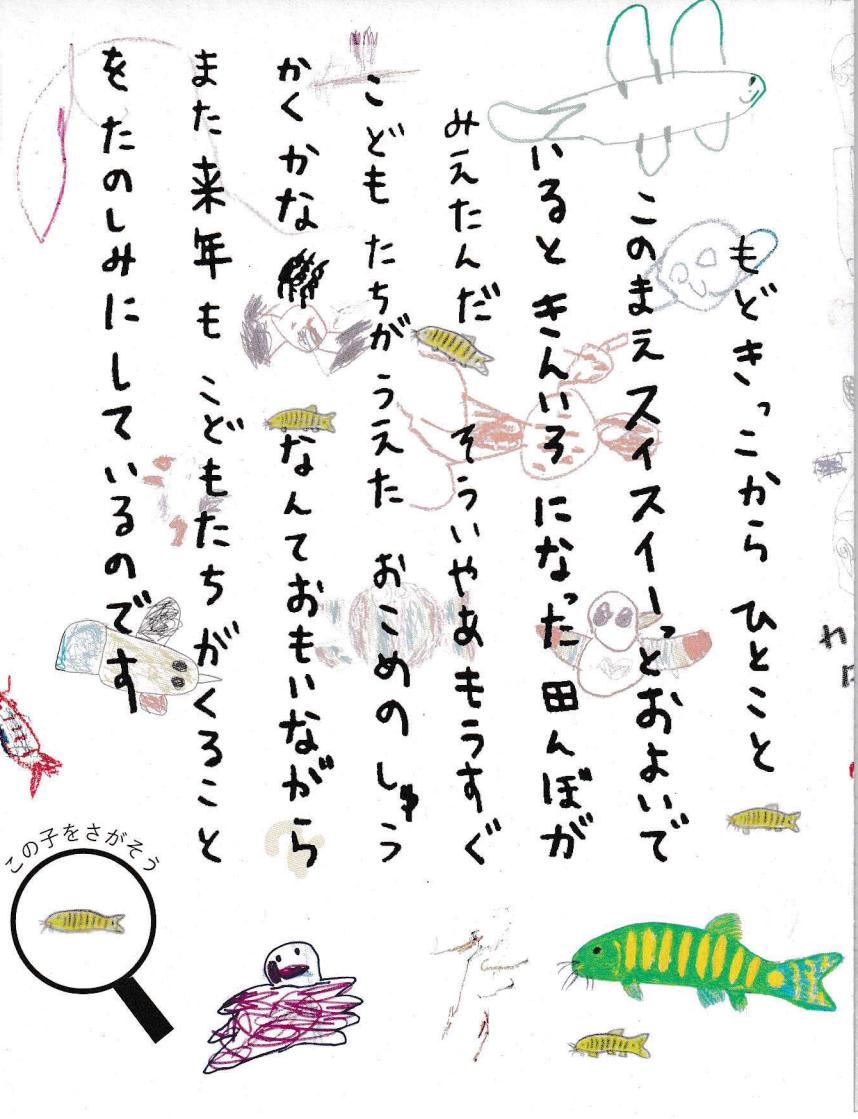 もどきっこから ひとこと
このまえスイスイーっとおよいで
いるときんいろになった田んぼが
みえたんだ そういやあもうすぐ
こどもたちがうえた おこめのしゅう
かくかな なんておもいながら
また来年も こどもたちがくること
をたのしみにしているのです
この子をさがそう